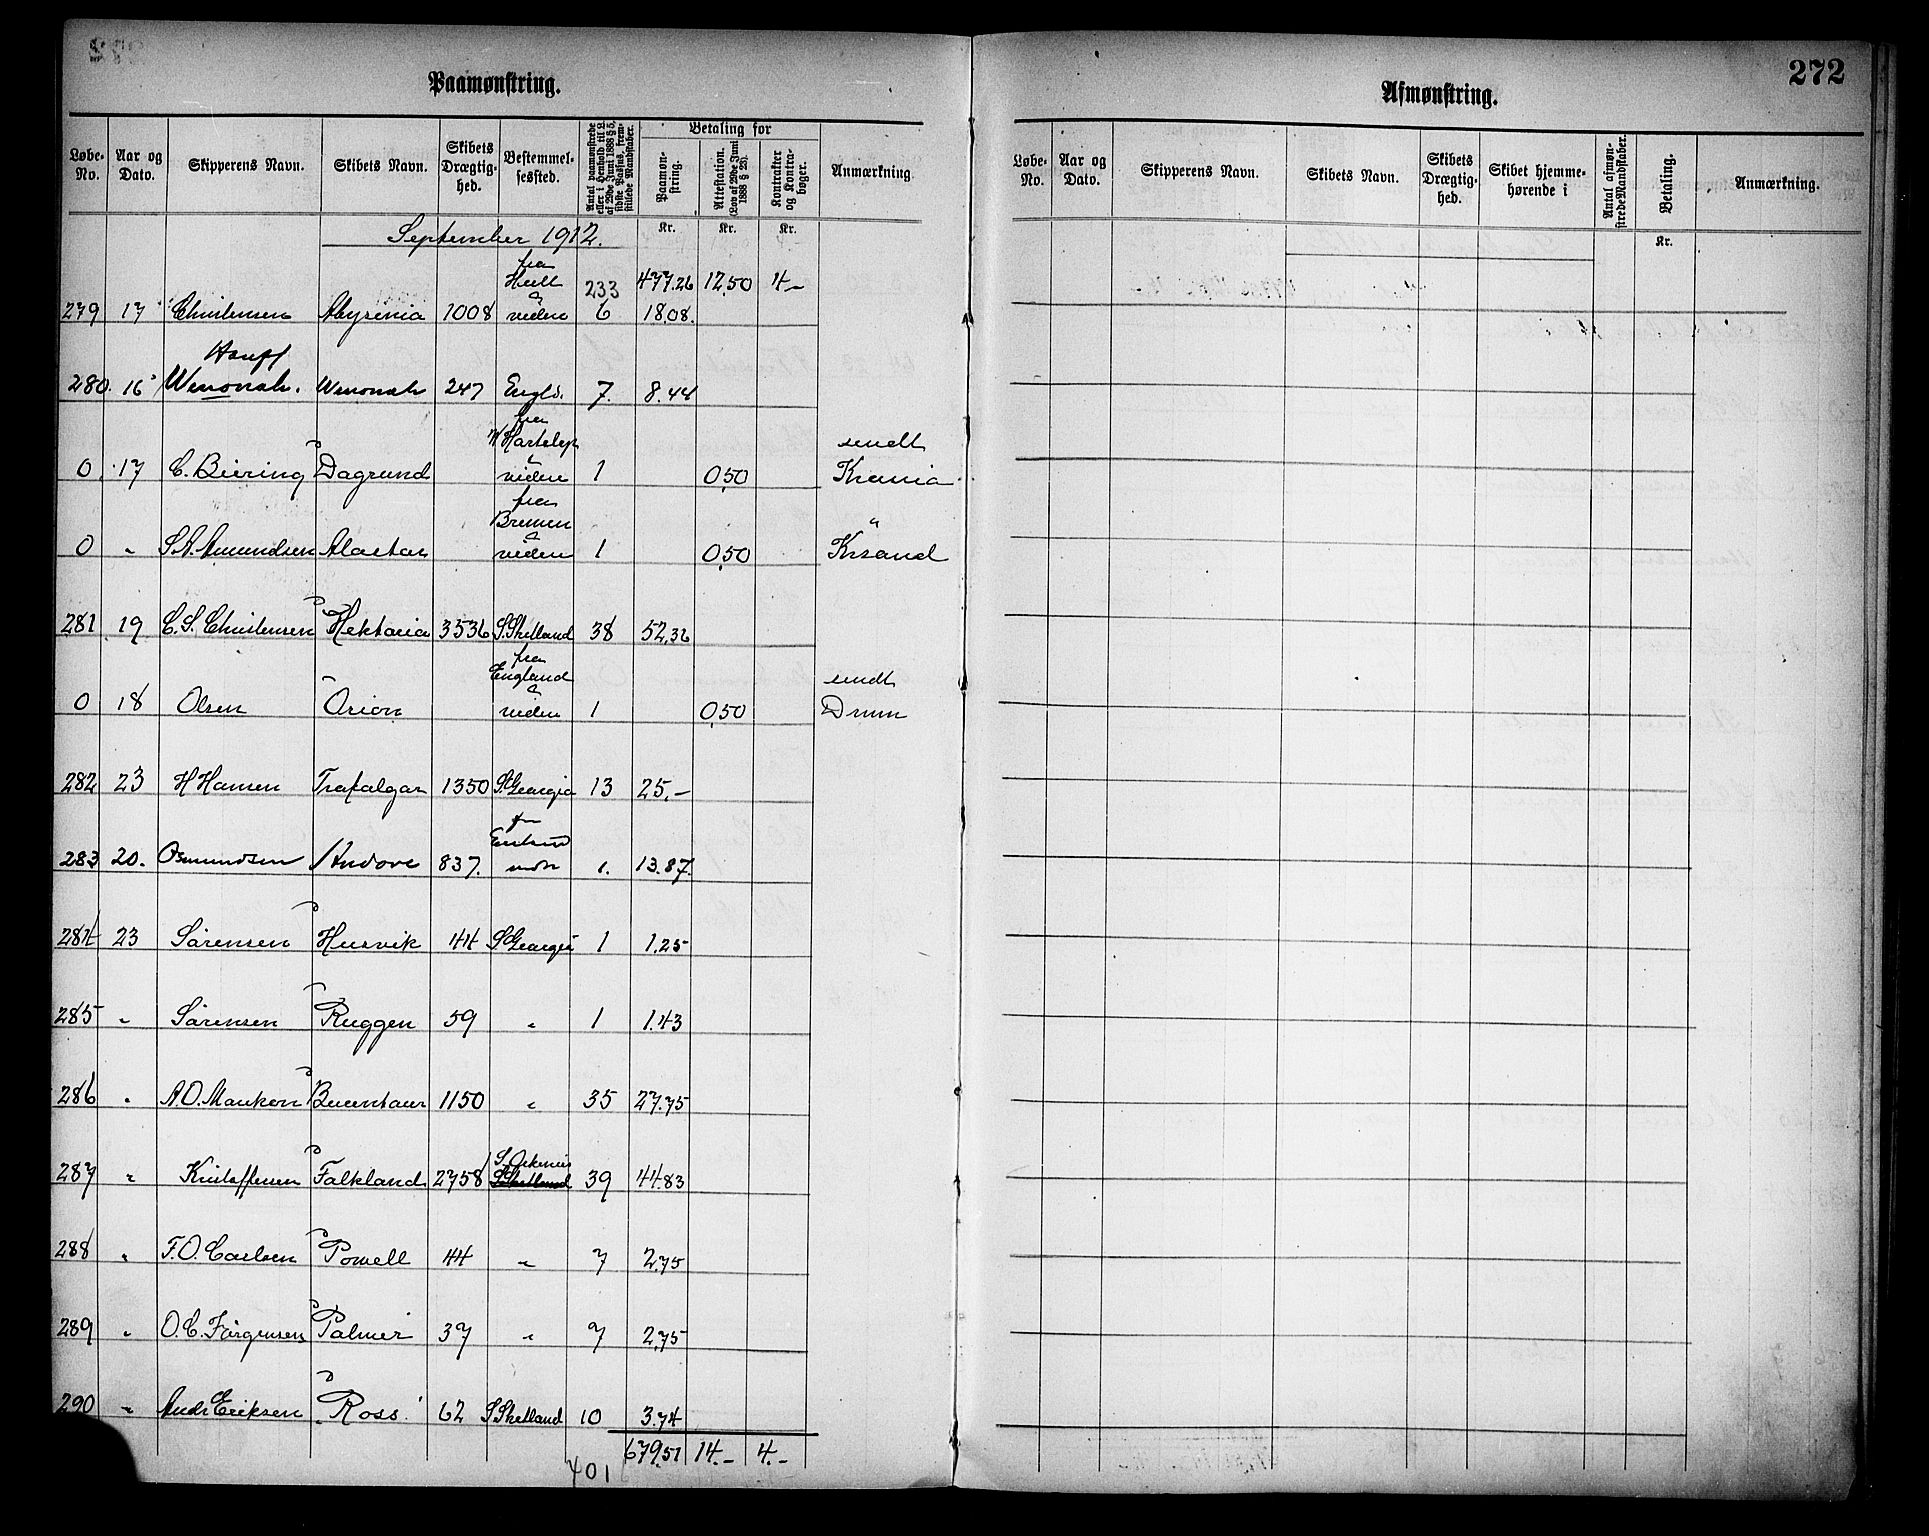 272
Paamønstring.
Løbe-No. Aar og Dato. Skipperens Navn. Skibets Navn. Skibets Drægtighed. Bestemmelsessted. Antal paamønstrede eller i Henhold til L. af 29de Juni 1888 § 5, sidste Passus, fremstillede Mandskaber. Betaling for Paamønstring. Attestation. (Lov af 29de Juni 1888 § 25). Kontrakter og Kontrabøger. Anmærkning
Kr. Kr. Kr.
September 1912.
fra Hull 233 477.26 12,50 4-
279 17 Christensen Abysinia 1008 viden 6 18.08.
Hauff
280. 16 Wenonah. Wenonah 247 Engld. 7. 8.44
fra W Hartelep sendt
0. 17 C. Biering Dagrund viden 1 0,50 Krania
fra Bremen "
0 " S.A. Amundsen Alastor viden 1 0,50 Krsand
281 19 C.S. Christensen Hektoria 3536 S. Shetland 38 52,36
fra England sendt
0 18 Olsen Orion viden 1 0,50 Dram
282 23 H Hansen Trafalgar 1350 S. Georgia 13 25,-
283 20. Osmundsen Andove 837. 1. 13.87.
284 23 Sørensen Husvik 44 S Georgia 1 1.25
285 " Sørensen Ruggen 59 " 1 1.43
286 " A.O. 1150 " 35 27.75
287 " Kristoffersen Falkland 2758 S. Orkenøi S Shetland 39 44.83
288 " F.O. Carlsen Powell 44 " 7 2.75
289 " O.C. Jørgensen Palmer 37 " 7 2.75
290 " Andr Eriksen Ross 62 S Shetland 10 3.74
679.51 14.- 4.-
401
Afmønstring.
Løbe-No. Aar og Dato. Skipperens Navn. Skibets Navn. Skibets Drægtighed. Skibet hjemmehørende i Antal afmønstrede Mandskaber. Betaling. Anmærkning.
Kr.